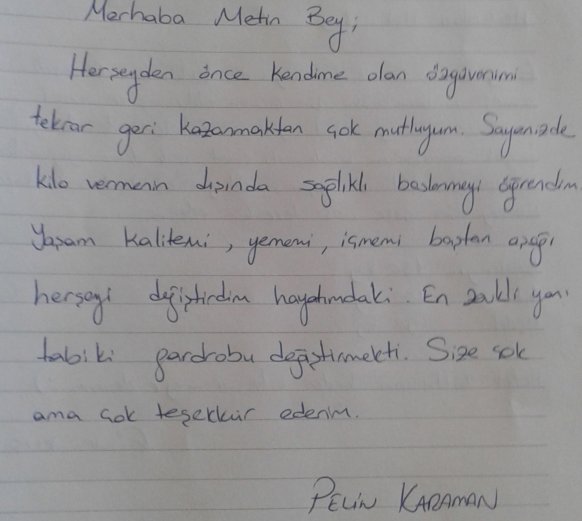 Merhaba Metin Bey;
Herseyden önce kendime olan özgüvenimi
tekrar geri kazanmaktan çok mutluyum. Sayenizde
kilo vermenin dışında sağlıklı beslenmeyi öğrendim
Yaşam kalitemi, yememi, içmemi baştan aşağı
herşeyi değiştirdim hayatımdaki. En zevkli yanı
tabiki gardrobu değiştirmekti. Size çok
ama çok teşekkür ederim.
PELİN KARAMAN